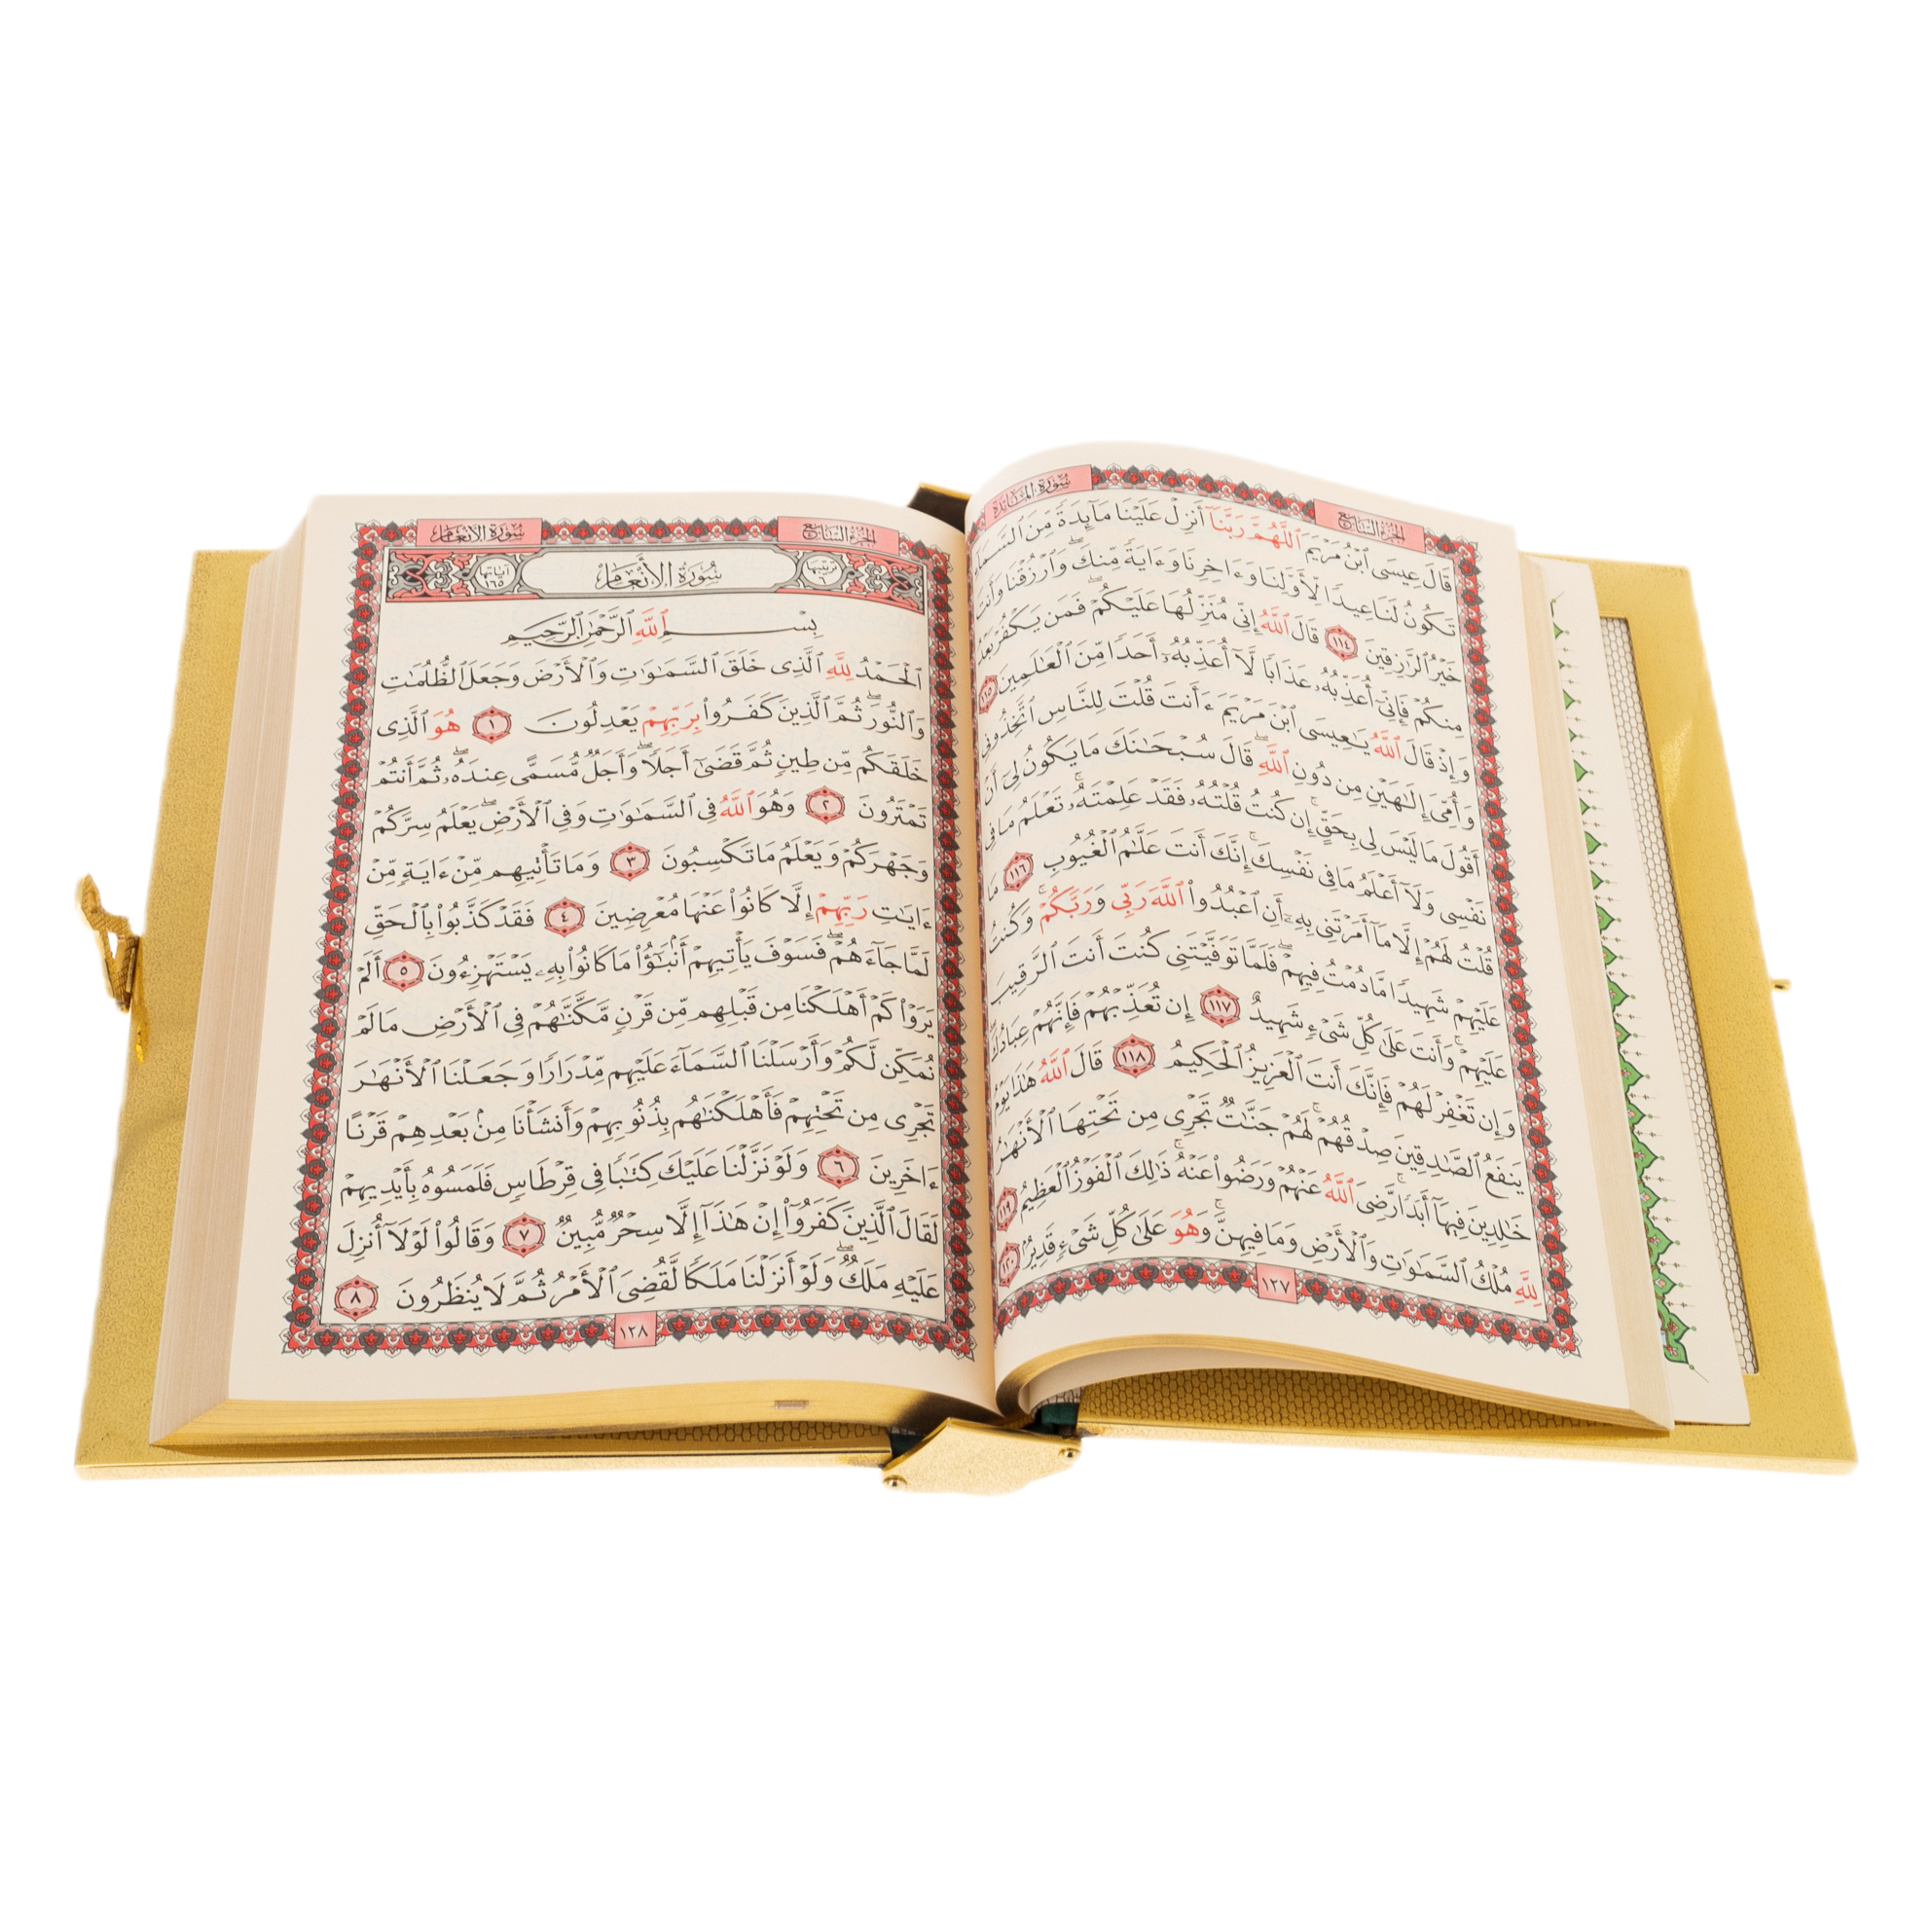 سُورَةُ المَائدة
الجزء السابع
قَالَ عِيسَى ٱبْنُ مَرْيَمَ ٱللَّهُمَّ رَبَّنَآ أَنزِلْ عَلَيْنَا مَآئِدَةً مِّنَ ٱلسَّمَآءِ
تَكُونُ لَنَا عِيدًا لِّأَوَّلِنَا وَءَاخِرِنَا وَءَايَةً مِّنكَ ۖ وَٱرْزُقْنَا وَأَنتَ
خَيْرُ ٱلرَّٰزِقِينَ ١١٤ قَالَ ٱللَّهُ إِنِّى مُنَزِّلُهَا عَلَيْكُمْ ۖ فَمَن يَكْفُرْ بَعْدُ
مِنكُمْ فَإِنِّىٓ أُعَذِّبُهُۥ عَذَابًا لَّآ أُعَذِّبُهُۥٓ أَحَدًا مِّنَ ٱلْعَٰلَمِينَ ١١٥
وَإِذْ قَالَ ٱللَّهُ يَٰعِيسَى ٱبْنَ مَرْيَمَ ءَأَنتَ قُلْتَ لِلنَّاسِ ٱتَّخِذُونِى
وَأُمِّىَ إِلَٰهَيْنِ مِن دُونِ ٱللَّهِ ۖ قَالَ سُبْحَٰنَكَ مَا يَكُونُ لِىٓ أَنْ
أَقُولَ مَا لَيْسَ لِى بِحَقٍّ ۚ إِن كُنتُ قُلْتُهُۥ فَقَدْ عَلِمْتَهُۥ ۚ تَعْلَمُ مَا فِى
نَفْسِى وَلَآ أَعْلَمُ مَا فِى نَفْسِكَ ۚ إِنَّكَ أَنتَ عَلَّٰمُ ٱلْغُيُوبِ ١١٦ مَا
قُلْتُ لَهُمْ إِلَّا مَآ أَمَرْتَنِى بِهِۦٓ أَنِ ٱعْبُدُوا۟ ٱللَّهَ رَبِّى وَرَبَّكُمْ ۚ وَكُنتُ
عَلَيْهِمْ شَهِيدًا مَّا دُمْتُ فِيهِمْ ۖ فَلَمَّا تَوَفَّيْتَنِى كُنتَ أَنتَ ٱلرَّقِيبَ
عَلَيْهِمْ ۚ وَأَنتَ عَلَىٰ كُلِّ شَىْءٍ شَهِيدٌ ١١٧ إِن تُعَذِّبْهُمْ فَإِنَّهُمْ عِبَادُكَ ۖ
وَإِن تَغْفِرْ لَهُمْ فَإِنَّكَ أَنتَ ٱلْعَزِيزُ ٱلْحَكِيمُ ١١٨ قَالَ ٱللَّهُ هَٰذَا يَوْمُ
يَنفَعُ ٱلصَّٰدِقِينَ صِدْقُهُمْ ۚ لَهُمْ جَنَّٰتٌ تَجْرِى مِن تَحْتِهَا ٱلْأَنْهَٰرُ
خَٰلِدِينَ فِيهَآ أَبَدًا ۚ رَّضِىَ ٱللَّهُ عَنْهُمْ وَرَضُوا۟ عَنْهُ ۚ ذَٰلِكَ ٱلْفَوْزُ ٱلْعَظِيمُ ١١٩
لِلَّهِ مُلْكُ ٱلسَّمَٰوَٰتِ وَٱلْأَرْضِ وَمَا فِيهِنَّ ۚ وَهُوَ عَلَىٰ كُلِّ شَىْءٍ قَدِيرٌۢ ١٢٠
١٢٧
الجزء السابع
سُورَة الانعَام
ترتيبها ٦ سُورَةُ الأَنْعَامِ آياتها ١٦٥
بِسْمِ ٱللَّهِ ٱلرَّحْمَٰنِ ٱلرَّحِيمِ
ٱلْحَمْدُ لِلَّهِ ٱلَّذِى خَلَقَ ٱلسَّمَٰوَٰتِ وَٱلْأَرْضَ وَجَعَلَ ٱلظُّلُمَٰتِ
وَٱلنُّورَ ۖ ثُمَّ ٱلَّذِينَ كَفَرُوا۟ بِرَبِّهِمْ يَعْدِلُونَ ١ هُوَ ٱلَّذِى
خَلَقَكُم مِّن طِينٍ ثُمَّ قَضَىٰٓ أَجَلًا ۖ وَأَجَلٌ مُّسَمًّى عِندَهُۥ ۖ ثُمَّ أَنتُمْ
تَمْتَرُونَ ٢ وَهُوَ ٱللَّهُ فِى ٱلسَّمَٰوَٰتِ وَفِى ٱلْأَرْضِ ۖ يَعْلَمُ سِرَّكُمْ
وَجَهْرَكُمْ وَيَعْلَمُ مَا تَكْسِبُونَ ٣ وَمَا تَأْتِيهِم مِّنْ ءَايَةٍ مِّنْ
ءَايَٰتِ رَبِّهِمْ إِلَّا كَانُوا۟ عَنْهَا مُعْرِضِينَ ٤ فَقَدْ كَذَّبُوا۟ بِٱلْحَقِّ
لَمَّا جَآءَهُمْ ۖ فَسَوْفَ يَأْتِيهِمْ أَنۢبَٰٓؤُا۟ مَا كَانُوا۟ بِهِۦ يَسْتَهْزِءُونَ ٥ أَلَمْ
يَرَوْا۟ كَمْ أَهْلَكْنَا مِن قَبْلِهِم مِّن قَرْنٍ مَّكَّنَّٰهُمْ فِى ٱلْأَرْضِ مَا لَمْ
نُمَكِّن لَّكُمْ وَأَرْسَلْنَا ٱلسَّمَآءَ عَلَيْهِم مِّدْرَارًا وَجَعَلْنَا ٱلْأَنْهَٰرَ
تَجْرِى مِن تَحْتِهِمْ فَأَهْلَكْنَٰهُم بِذُنُوبِهِمْ وَأَنشَأْنَا مِنۢ بَعْدِهِمْ قَرْنًا
ءَاخَرِينَ ٦ وَلَوْ نَزَّلْنَا عَلَيْكَ كِتَٰبًا فِى قِرْطَاسٍ فَلَمَسُوهُ بِأَيْدِيهِمْ
لَقَالَ ٱلَّذِينَ كَفَرُوٓا۟ إِنْ هَٰذَآ إِلَّا سِحْرٌ مُّبِينٌ ٧ وَقَالُوا۟ لَوْلَآ أُنزِلَ
عَلَيْهِ مَلَكٌ ۖ وَلَوْ أَنزَلْنَا مَلَكًا لَّقُضِىَ ٱلْأَمْرُ ثُمَّ لَا يُنظَرُونَ ٨
١٢٨